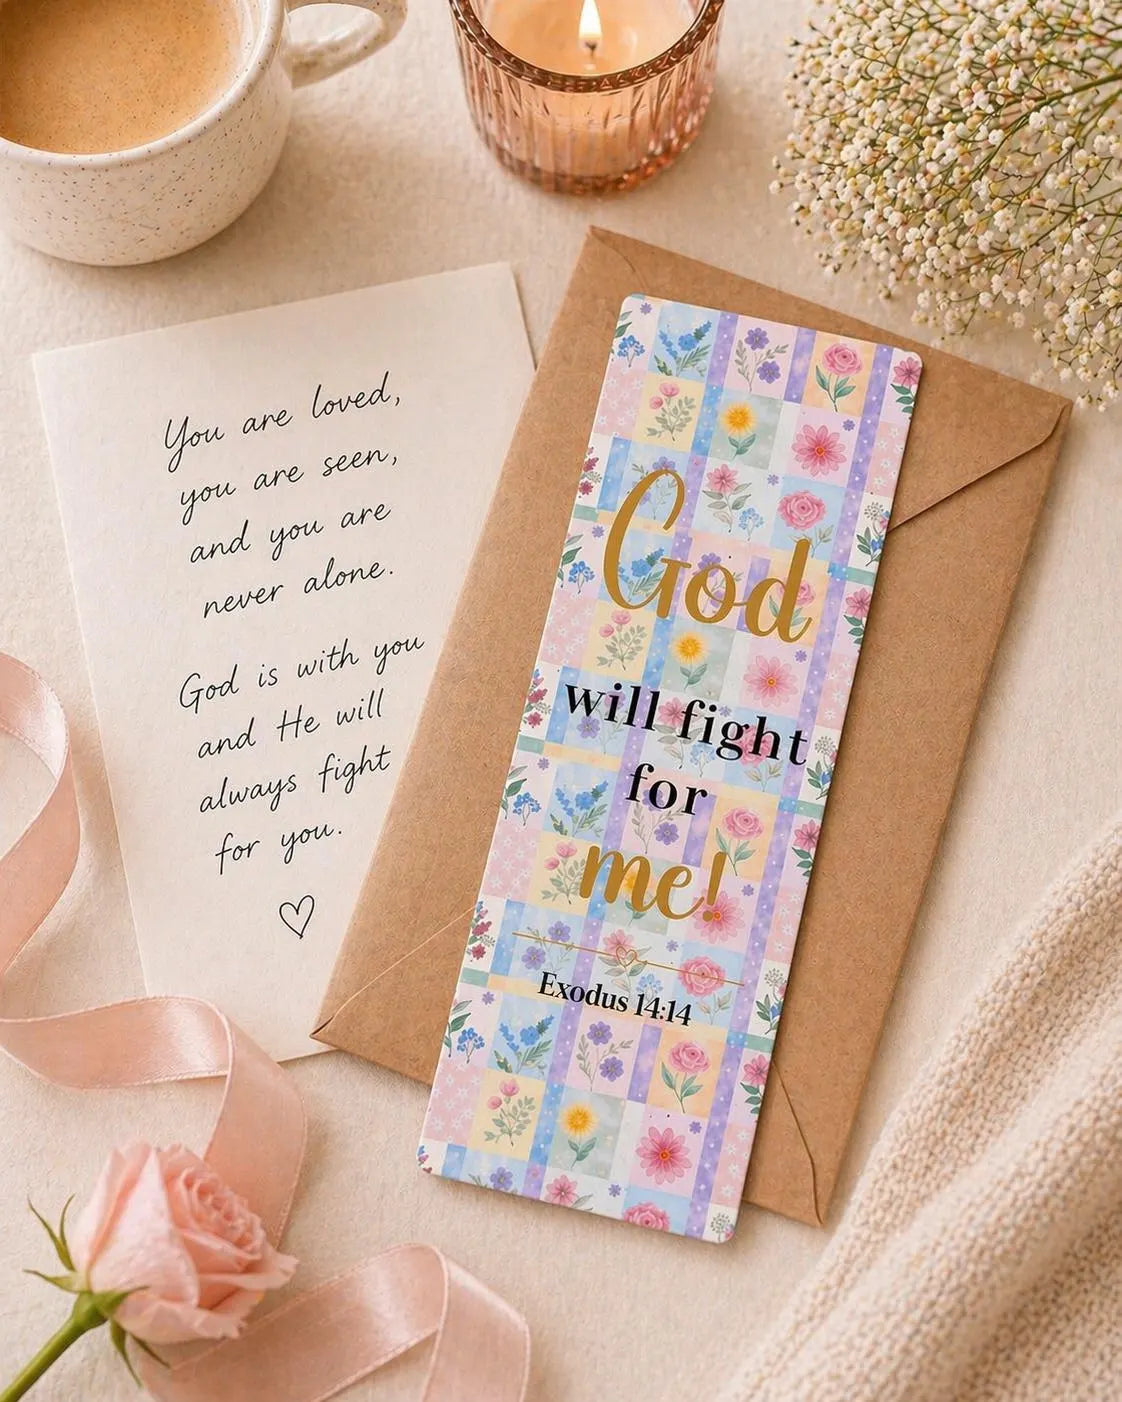 You are loved,
you are seen,
and you are
never alone.
God is with you
and He will
always fight
for you.
God
will fight
for
me!
Exodus 14:14